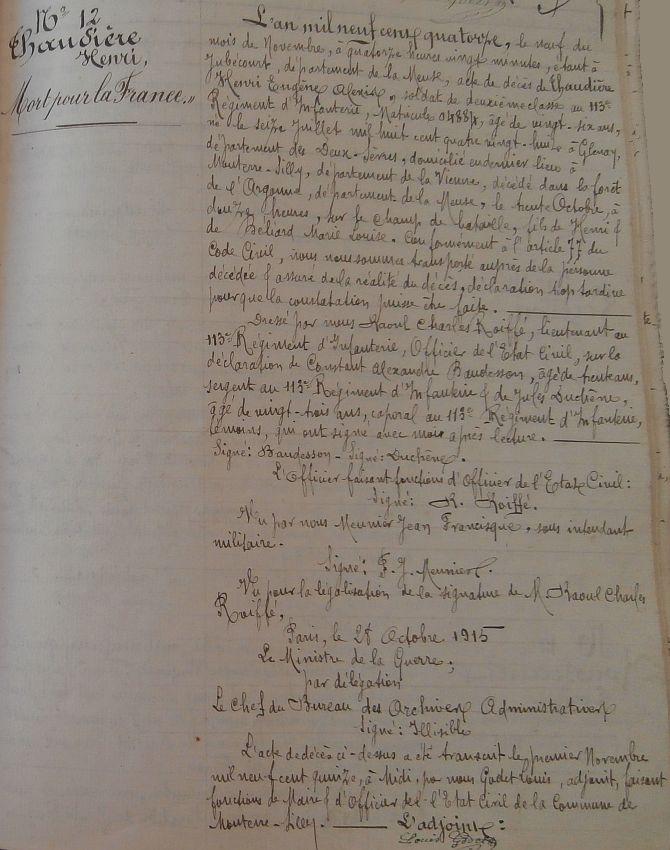 No 12
Chaudière
Henri,
Mort pour la France. "
L'an mil neuf cent quatorze, le neuf du
mois de Novembre, à quatorze heures vingt minutes, étant à
Jubécourt, département de la Meuse, acte de décès de Chaudière
Henri Eugène Alexis, soldat de deuxième classe au 113e
Régiment d'Infanterie, Matricule 04884, âgé de vingt-six ans,
né le seize Juillet mil huit cent quatre vingt-huit à Glenay,
département des Deux-Sèvres, domicilié en dernier lieu à
Monterre-Silly, département de la Vienne, décédé dans la forêt
de l'Argonne, département de la Meuse, le trente Octobre, à
douze heures, sur le champ de bataille, fils de Henri &
de Beliard Marie Louise. Conformément à l'article 77 du
Code Civil, nous nous sommes transporté auprès de la personne
décédée & assuré de la réalité du décès, déclaration trop tardive
pour que la constatation puisse être faite.
Dressé par nous Raoul Charles Roiffé, lieutenant au
113e Régiment d'Infanterie, Officier de l'Etat Civil, sur la
déclaration de Constant Alexandre Baudesson, âgé de trente ans,
sergent au 113e Régiment d'Infanterie & de Jules Duchêne,
âgé de vingt-trois ans, caporal au 113e Régiment d'Infanterie,
témoins, qui ont signé avec moi après lecture.
Signé: Baudesson - Signé: Duchêne.
L'Officier faisant fonctions d'Officier de l'Etat Civil:
Signé: R. Roiffé.
Vu par nous Meunier Jean Francisque, sous intendant
militaire.
Signé: F. J. Meunier.
Vu pour la légalisation de la signature de M. Raoul Charles
Roiffé,
Paris, le Octobre 1915
Le Ministre de la Guerre,
par délégation
Le Chef du Bureau des Archives Administratives
Signé: Illisible
L'acte de décès ci-dessus a été transcrit le premier Novembre
mil neuf cent quinze, à Midi, par nous Godet Louis, adjoint, faisant
fonctions de Maire & d'Officier de l'Etat Civil de la Commune de
Monterre-Silly. L'adjoint:
Louis Godet